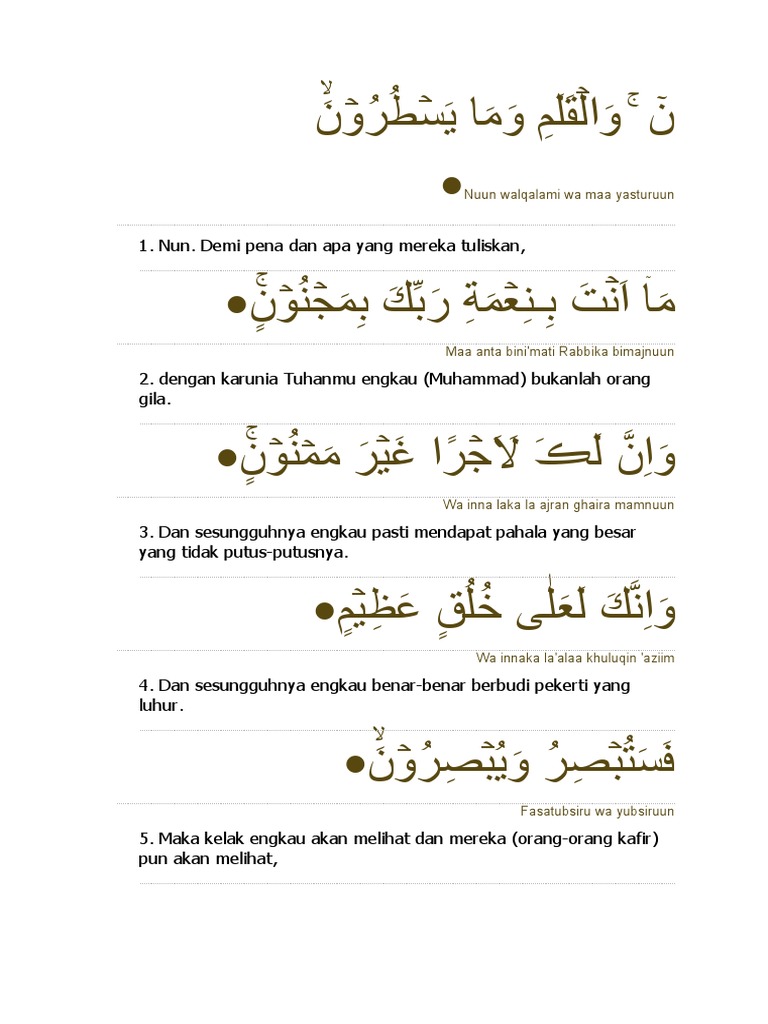 نٓ ۚ وَالْقَلَمِ وَمَا يَسْطُرُوْنَۙ
● Nuun walqalami wa maa yasturuun
1. Nun. Demi pena dan apa yang mereka tuliskan,
مَآ اَنْتَ بِنِعْمَةِ رَبِّكَ بِمَجْنُوْنٍۚ ●
Maa anta bini'mati Rabbika bimajnuun
2. dengan karunia Tuhanmu engkau (Muhammad) bukanlah orang
gila.
وَاِنَّ لَكَ لَاَجْرًا غَيْرَ مَمْنُوْنٍۚ ●
Wa inna laka la ajran ghaira mamnuun
3. Dan sesungguhnya engkau pasti mendapat pahala yang besar
yang tidak putus-putusnya.
وَاِنَّكَ لَعَلٰى خُلُقٍ عَظِيْمٍ ●
Wa innaka la'alaa khuluqin 'aziim
4. Dan sesungguhnya engkau benar-benar berbudi pekerti yang
luhur.
فَسَتُبْصِرُ وَيُبْصِرُوْنَۙ ●
Fasatubsiru wa yubsiruun
5. Maka kelak engkau akan melihat dan mereka (orang-orang kafir)
pun akan melihat,